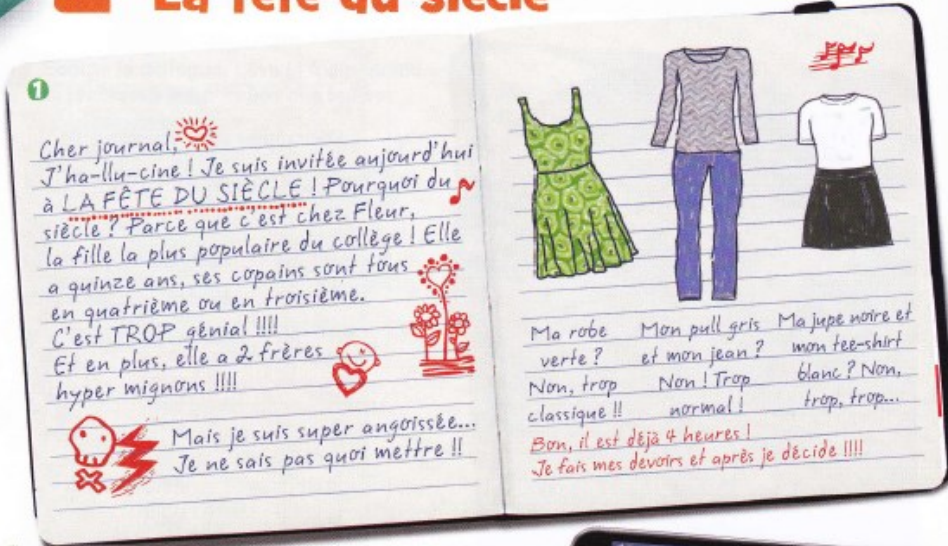 La fête du siècle
1
Cher journal,
J'ha-llu-cine ! Je suis invitée aujourd'hui
à LA FÊTE DU SIÈCLE ! Pourquoi du
siècle ? Parce que c'est chez Fleur,
la fille la plus populaire du collège ! Elle
a quinze ans, ses copains sont tous
en quatrième ou en troisième.
C'est TROP génial !!!!
Et en plus, elle a 2 frères
hyper mignons !!!!
Mais je suis super angoissée...
Je ne sais pas quoi mettre !!
Ma robe
verte ?
Non, trop
classique !!
Mon pull gris
et mon jean ?
Non ! Trop
normal !
Ma jupe noire et
mon tee-shirt
blanc ? Non,
trop, trop...
Bon, il est déjà 4 heures !
Je fais mes devoirs et après je décide !!!!